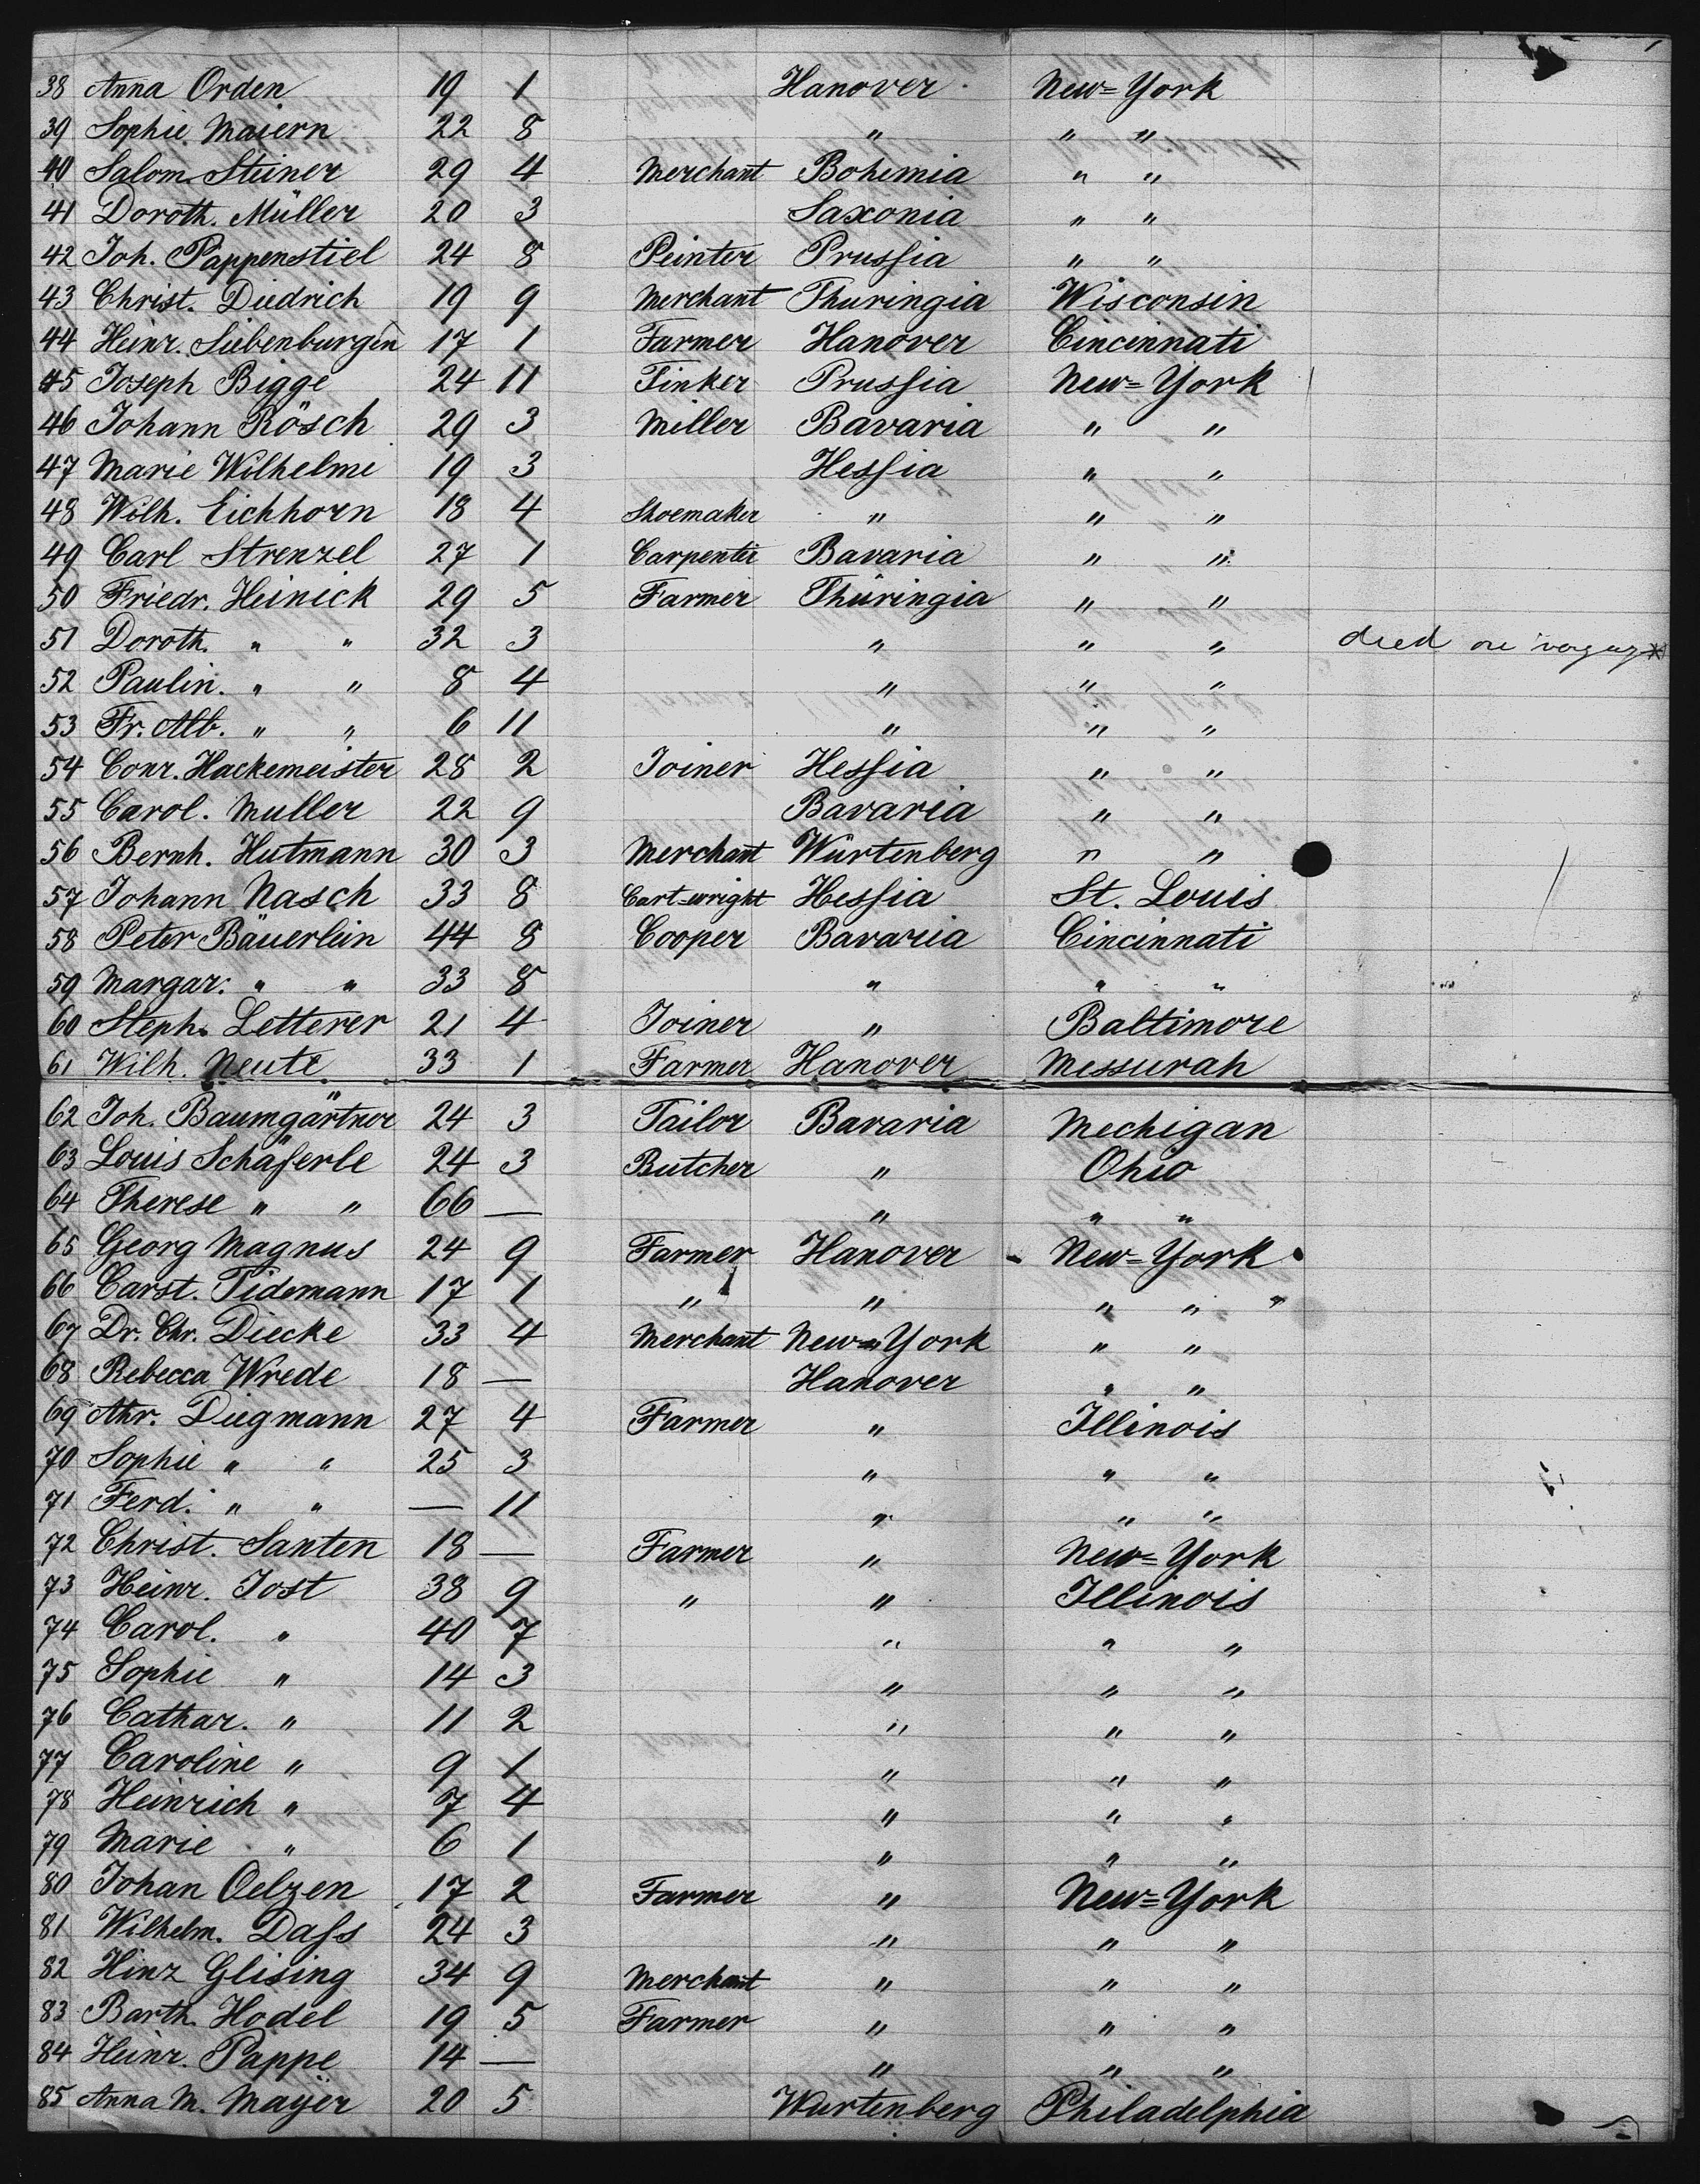 38 Anna Orden 19 1 Hanover New=York
39 Sophie Maiern 22 8 " " "
40 Salom. Steiner 29 4 Merchant Bohemia " "
41 Doroth. Müller 20 3 Saxonia " "
42 Joh. Pappenstiel 24 8 Peinter Prussia " "
43 Christ. Diedrich 19 9 Merchant Thuringia Wisconsin
44 Heinr. Siebenburgen 17 1 Farmer Hanover Cincinnati
45 Joseph Bigge 24 11 Tinker Prussia New=York
46 Johann Rösch 29 3 Miller Bavaria " "
47 Marie Wilhelmi 19 3 Hessia " "
48 Wilh. Eichhorn 18 4 Shoemaker " " "
49 Carl Strenzel 27 1 Carpenter Bavaria " "
50 Friedr. Heinick 29 5 Farmer Thüringia " "
51 Doroth. " " 32 3 " " " died on voyag
52 Paulin. " " 8 4 " " "
53 Fr. Alb. " " 6 11 " " "
54 Conr. Hackemeister 28 2 Joiner Hessia " "
55 Carol. Muller 22 9 Bavaria " "
56 Bernh. Hutmann 30 3 Merchant Würtenberg " "
57 Johann Nasch 33 8 Cart=wright Hessia St. Louis
58 Peter Bäuerlein 44 8 Cooper Bavaria Cincinnati
59 Margar: " " 33 8 " " "
60 Steph. Letterer 21 4 Joiner " Baltimore
61 Wilh. Neute 33 1 Farmer Hanover Messurah
62 Joh. Baumgärtner 24 3 Tailor Bavaria Mechigan
63 Louis Schäferle 24 3 Butcher " Ohio
64 Therese " " 66 — " " "
65 Georg Magnus 24 9 Farmer Hanover - New=York
66 Carst. Tidemann 17 1 " " " " "
67 Dr. Chr. Diecke 33 4 Merchant New=York " "
68 Rebecca Wrede 18 — Hanover " "
69 Ahr. Diegmann 27 4 Farmer " Illinois
70 Sophie " " 25 3 " " "
71 Ferd. " " — 11 " " "
72 Christ. Santen 18 — Farmer " New=York
73 Heinr. Jost 38 9 " " Illinois
74 Carol. " 40 7 " " "
75 Sophie " 14 3 " " "
76 Cathar. " 11 2 " " "
77 Caroline " 9 1 " " "
78 Heinrich " 7 4 " " "
79 Marie " 6 1 " " "
80 Johan Oelzen 17 2 Farmer " New=York
81 Wilhelm. Dass 24 3 " " "
82 Hinz Glising 34 9 Merchant " " "
83 Barth. Hodel 19 5 Farmer " " "
84 Heinr. Pappe 14 — " " "
85 Anna M. Mayer 20 5 Wurtenberg Philadelphia